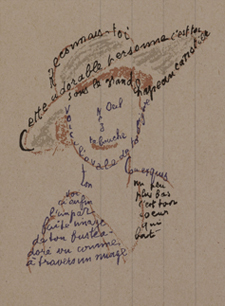 Reconnais-toi
Cette adorable personne c'est toi
Sous le grand chapeau canotier
Oeil
Nez
La bouche
Voici l'ovale de ta figure
Ton cou exquis
Voici enfin
l'impar
faite image
de ton buste a
doré vu comme
à travers un nuage
Un peu
plus bas
c'est ton
coeur
qui
bat